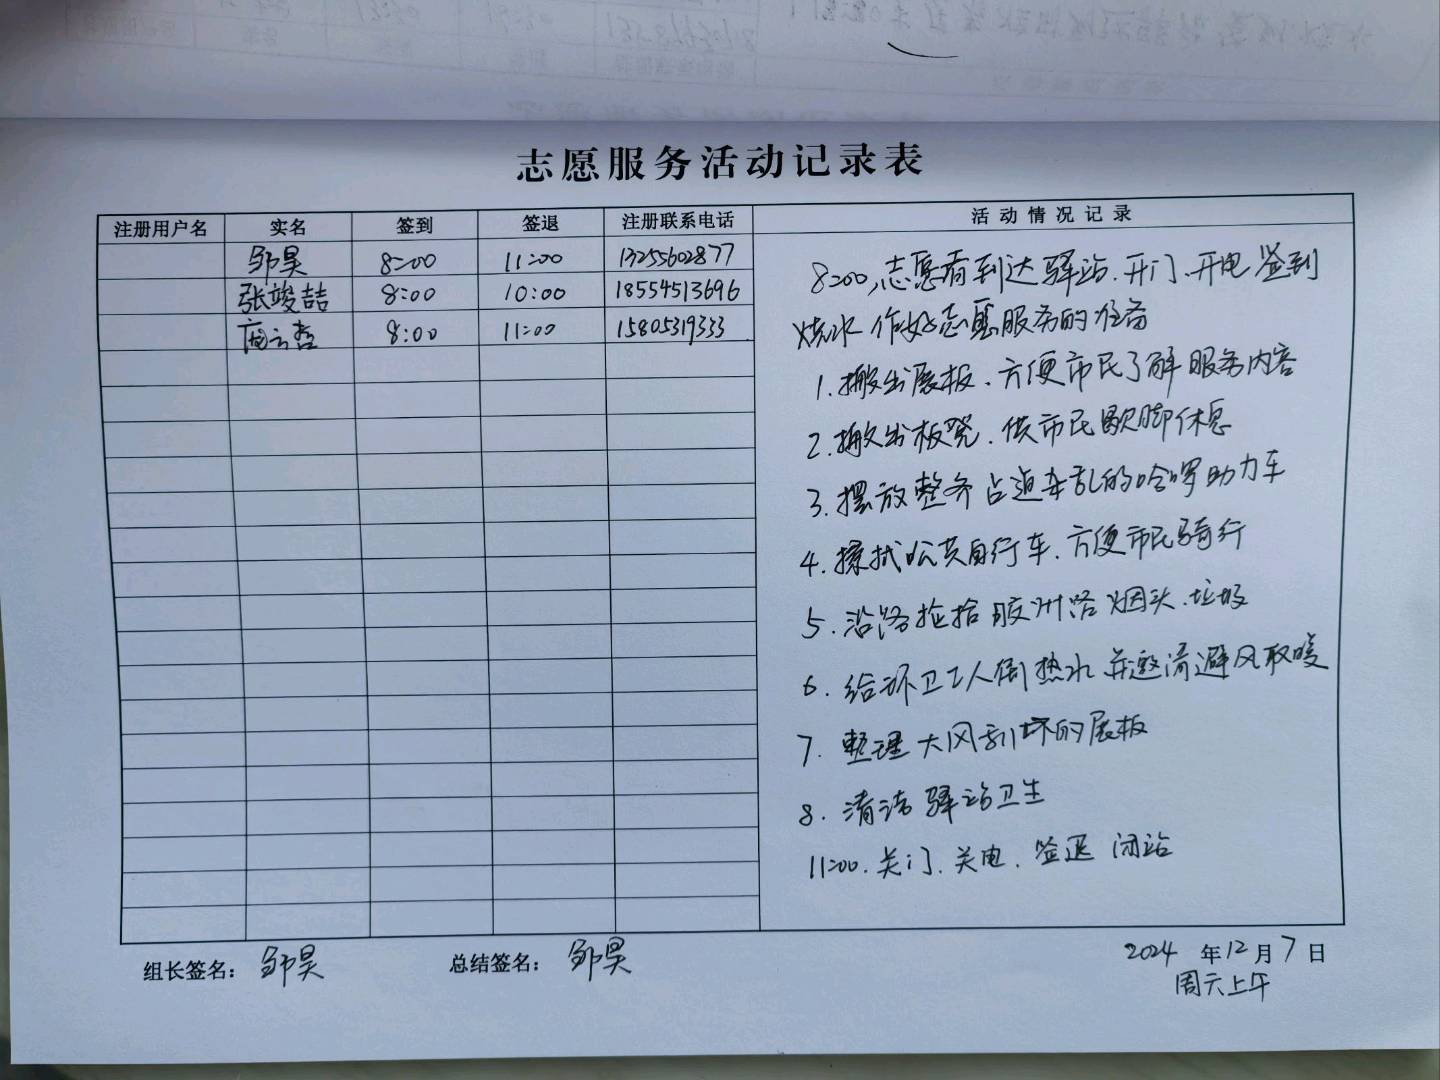 志愿服务活动记录表
注册用户名 实名 签到 签退 注册联系电话 活动情况记录
邹昊 8:00 11:00 13255602877
张竣喆 8:00 10:00 18554513696
庞云哲 8:00 11:00 15805319333
8:00,志愿者到达驿站.开门.开电 签到
烧水 作好志愿服务的准备
1.搬出展板.方便市民了解服务内容
2.搬出板凳.供市民歇脚休息
3.摆放整齐占道杂乱的哈啰助力车
4.擦拭公共自行车.方便市民骑行
5.沿路捡拾胶州路烟头.垃圾
6.给环卫工人倒热水并邀请避风取暖
7.整理大风刮坏的展板
8.清洁驿站卫生
11:00.关门.关电.签退 闭站
组长签名：邹昊 总结签名：邹昊 2024年12月7日
周六上午